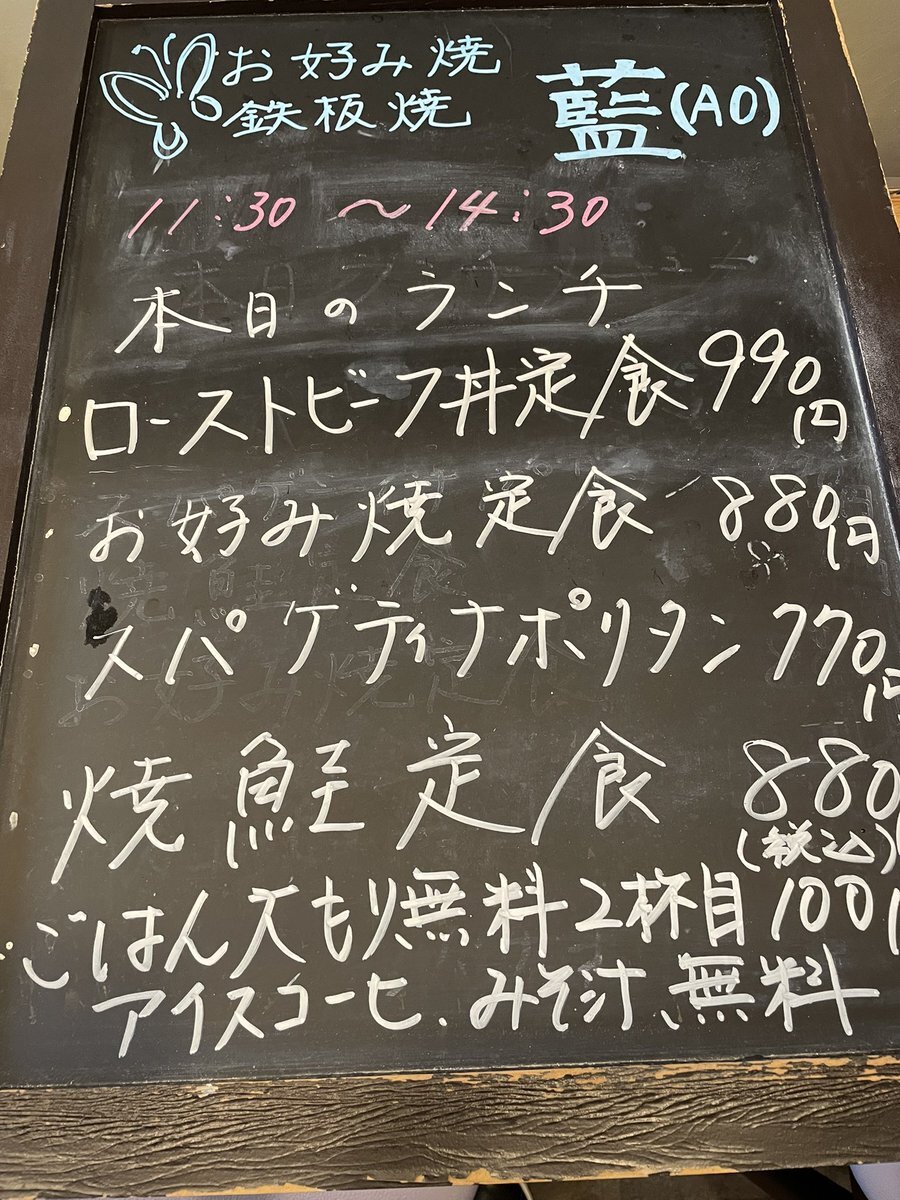 お好み焼
鉄板焼
藍(AO)
11:30 〜 14:30
本日のランチ
ローストビーフ丼定食 990円
お好み焼定食 880円
スパゲティナポリタン 770円
焼鮭定食 880
(税込)
ごはん大もり無料 2杯目 100
アイスコーヒ. みそ汁 無料